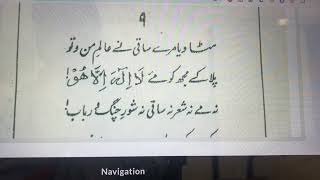 ۹
مٹا دیا مرے ساقی نے عالمِ من و تو
پلا کے مجھ کو مے لَا اِلٰہَ اِلَّا ھُوْ!
نہ مے نہ شعر نہ ساقی نہ شورِ چنگ و رباب!
Navigation